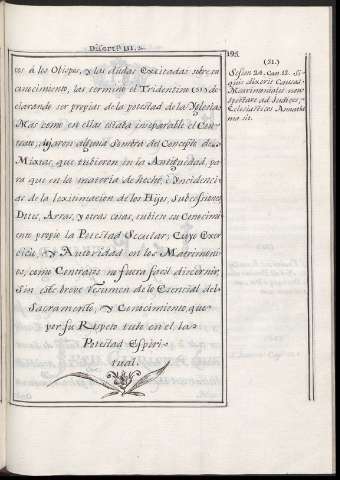 Disert.ⁿ III.ª
195.
tes á los Obispos, y las dudas Excitadas sobre su
conocimiento, las termino el Tridentino (31) de
clarando ser propias de la potestad de la Yglesia
Mas como en ellas estaba inseparable el Con
trato, dejaron alguna Sombra del Concepto de
Mixtas, que tubieron en la Antiguedad, pa
ra que en la materia de hecho, é Yncidenci
as de la lexitimacion de los Hijos, Subcesiones
Dotes, Arras, y otras cosas, tubiese su Conocimi
ento propio la Potestad Secular; Cuyo Exer
cicio, y Autoridad en los Matrimoni
os, como Contratos no fuera facil discernir,
Sin este breve resumen de lo Esencial del
Sacramento, y Conocimiento, que
por su Respeto tubo en el la
Potestad Espiri
tual.
(31.)
Sesion 24. Can. 12. Si
quis dixerit Causas
Matrimoniales non
spectare ad Judices
Eclesiasticos Anathe
ma sit.